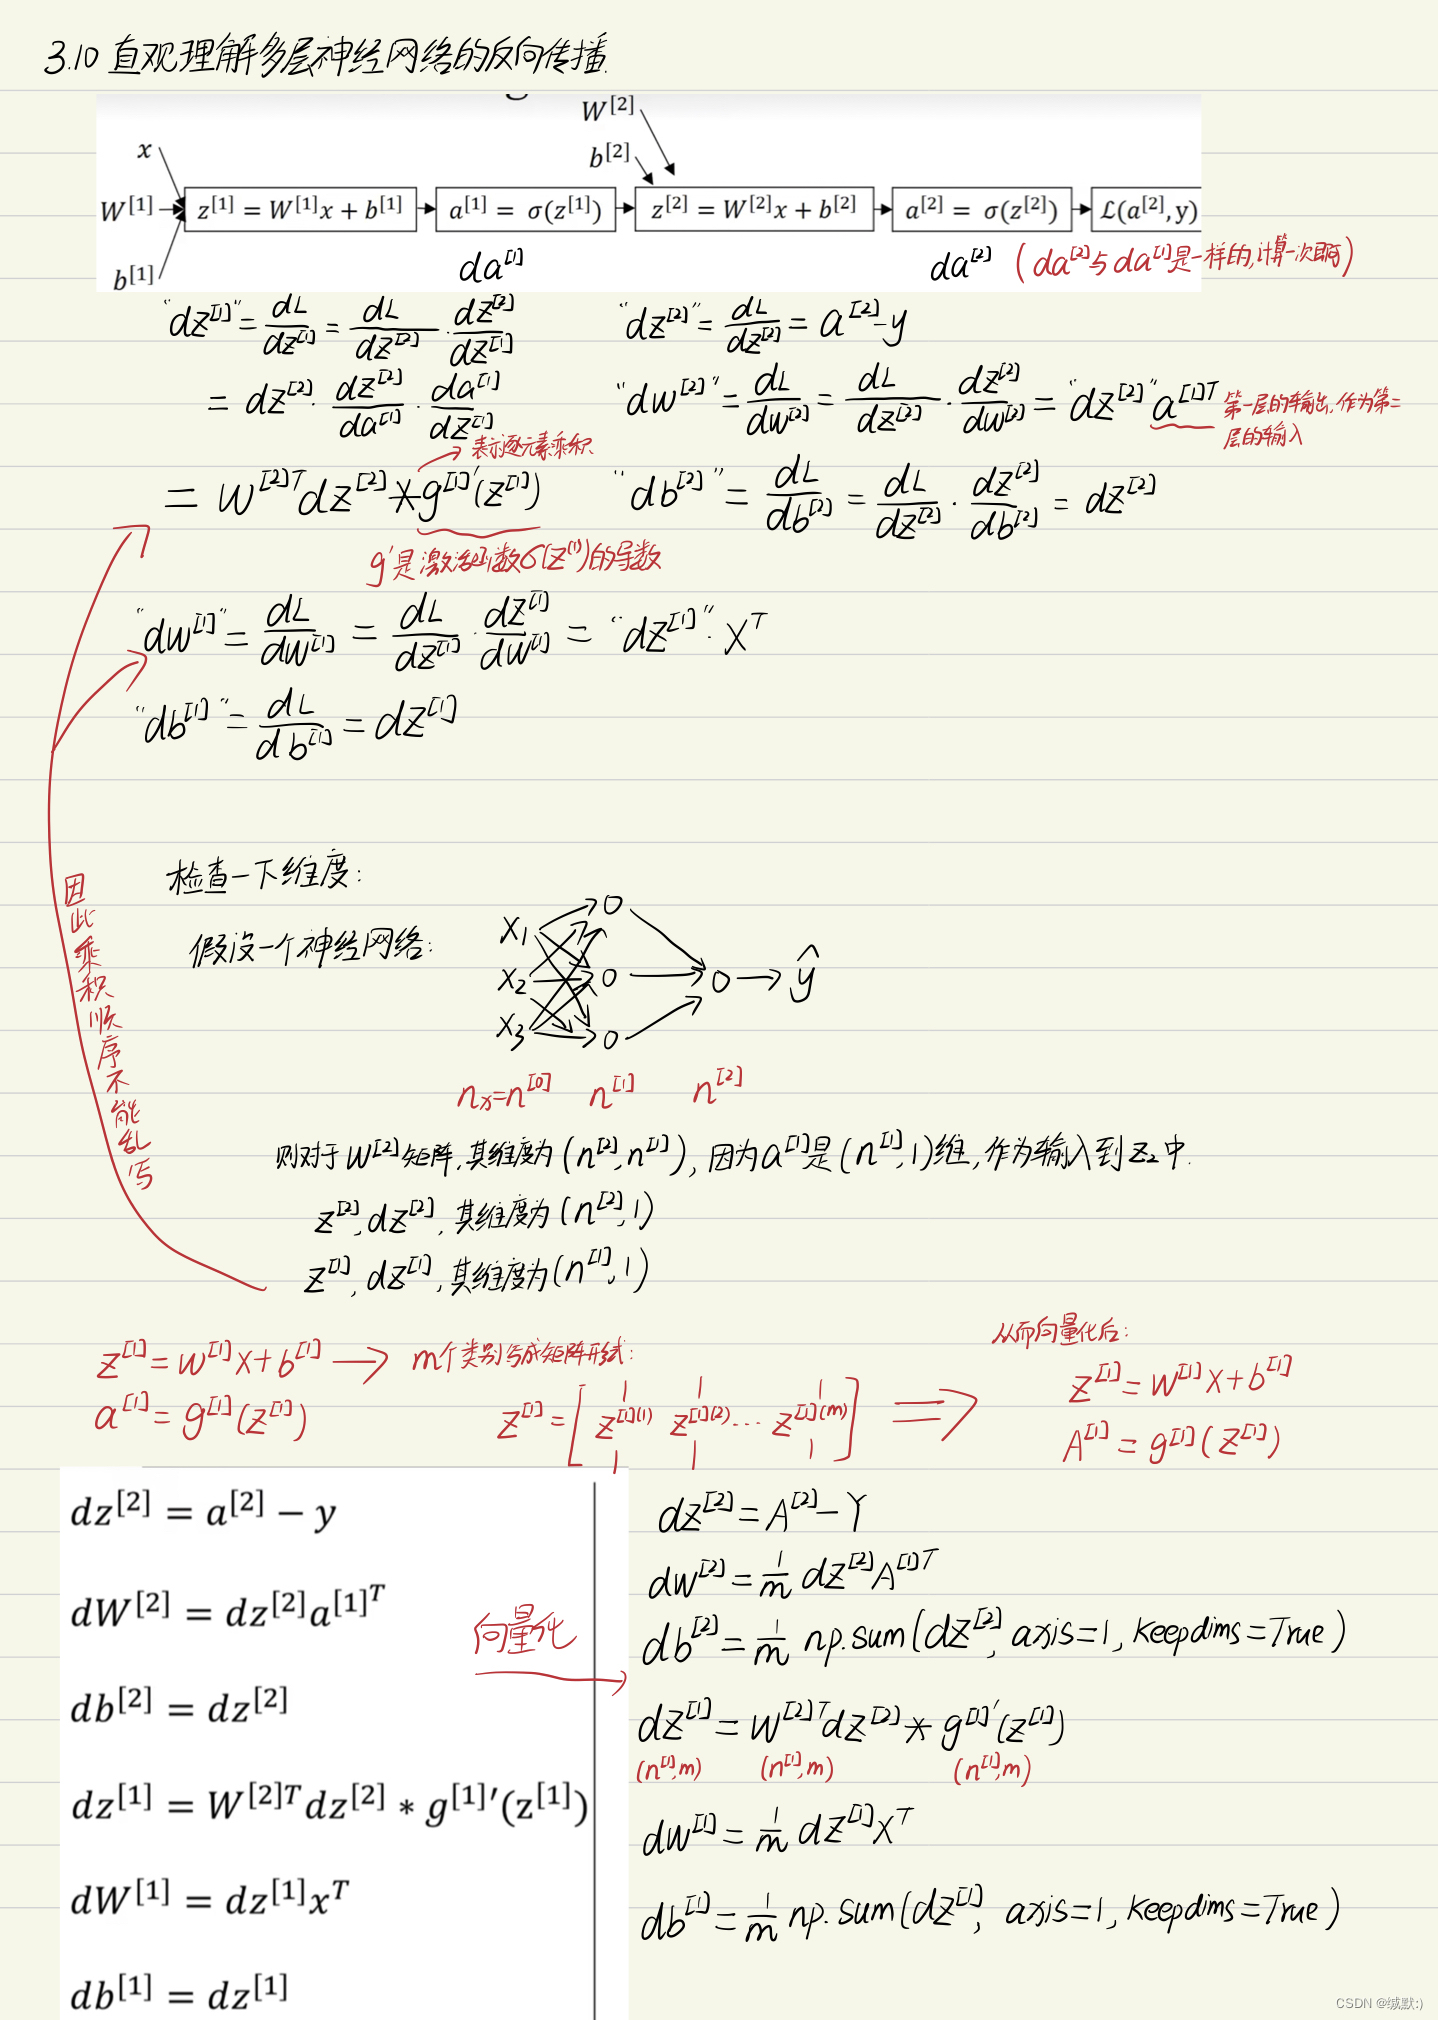 3.10 直观理解多层神经网络的反向传播.
W^[2]
x
b^[2]
W^[1]
z^[1] = W^[1]x + b^[1]
a^[1] = σ(z^[1])
z^[2] = W^[2]x + b^[2]
a^[2] = σ(z^[2])
ℒ(a^[2], y)
b^[1]
da^[1]
da^[2] (da^[2]与da^[1]是一样的,计算一次即可)
"dz^[1]" = dL/dz^[1] = dL/dz^[2] · dz^[2]/dz^[1]
= dz^[2] · dz^[2]/da^[1] · da^[1]/dz^[1]
表示逐元素乘积
= W^[2]T dz^[2] * g^[1]'(z^[1])
g'是激活函数σ(z^(1))的导数
"dz^[2]" = dL/dz^[2] = a^[2] - y
"dw^[2]" = dL/dw^[2] = dL/dz^[2] · dz^[2]/dw^[2] = "dz^[2]" a^[1]T
第一层的输出,作为第二
层的输入
"db^[2]" = dL/db^[2] = dL/dz^[2] · dz^[2]/db^[2] = dz^[2]
"dw^[1]" = dL/dw^[1] = dL/dz^[1] · dz^[1]/dw^[1] = "dz^[1]" · X^T
"db^[1]" = dL/db^[1] = dz^[1]
因此乘积顺序不能乱写
检查一下维度:
假设一个神经网络:
x1
x2
x3
ŷ
nx=n^[0] n^[1] n^[2]
则对于W^[2]矩阵,其维度为(n^[2], n^[1]), 因为a^[1]是(n^[1], 1)维,作为输入到z2中.
z^[2], dz^[2], 其维度为(n^[2], 1)
z^[1], dz^[1], 其维度为(n^[1], 1)
z^[1] = w^[1]x + b^[1] → m个类别写成矩阵形式:
a^[1] = g^[1](z^[1])
z^[1] = [z^[1](1) z^[1](2) ··· z^[1](m)] ⟹
从而向量化后:
z^[1] = w^[1]X + b^[1]
A^[1] = g^[1](z^[1])
dz^[2] = a^[2] − y
dW^[2] = dz^[2]a^[1]T
db^[2] = dz^[2]
dz^[1] = W^[2]T dz^[2] * g^[1]'(z^[1])
dW^[1] = dz^[1]x^T
db^[1] = dz^[1]
向量化
dz^[2] = A^[2] − Y
dw^[2] = 1/m dz^[2]A^[1]T
db^[2] = 1/m np.sum(dz^[2], axis=1, keepdims=True)
dz^[1] = W^[2]T dz^[2] * g^[1]'(z^[1])
(n^[1], m) (n^[1], m) (n^[1], m)
dw^[1] = 1/m dz^[1]X^T
db^[1] = 1/m np.sum(dz^[1], axis=1, keepdims=True)
CSDN @缄默:)